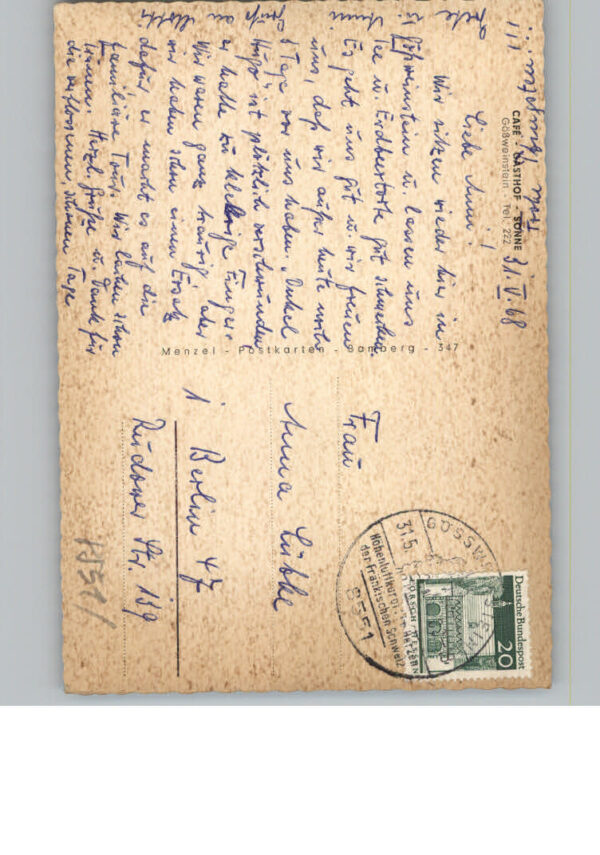 CAFÉ - GASTHOF - SONNE
Gößweinstein - Tel. 222
31. V. 68
Liebe Anni!
Wir sitzen wieder hier in
Gößweinstein u. lassen uns
Tee u. Erdbeertorte gut schmecken
Es geht uns gut u. wir freuen
uns, daß wir außer heute noch
Tage vor uns haben. Onkel
Hugo ist plötzlich verschwunden
er hatte zu klebrige Finger.
Wir waren ganz traurig, aber
wir haben schon einen Ersatz
dafür er macht es auf die
familiäre Tour. Wir
Herzl. Grüße u. Dank für
die schönen Tage
Menzel - Postkarten - Bamberg - 347
Frau
Anna Lübke
1 Berlin 47
Rudower Str. 139
GÖSSWEINSTEIN
31.5.
Höhenluftkurort im Herzen
der Fränkischen Schweiz
8551
Deutsche Bundespost
20
LORSCH/HESSEN